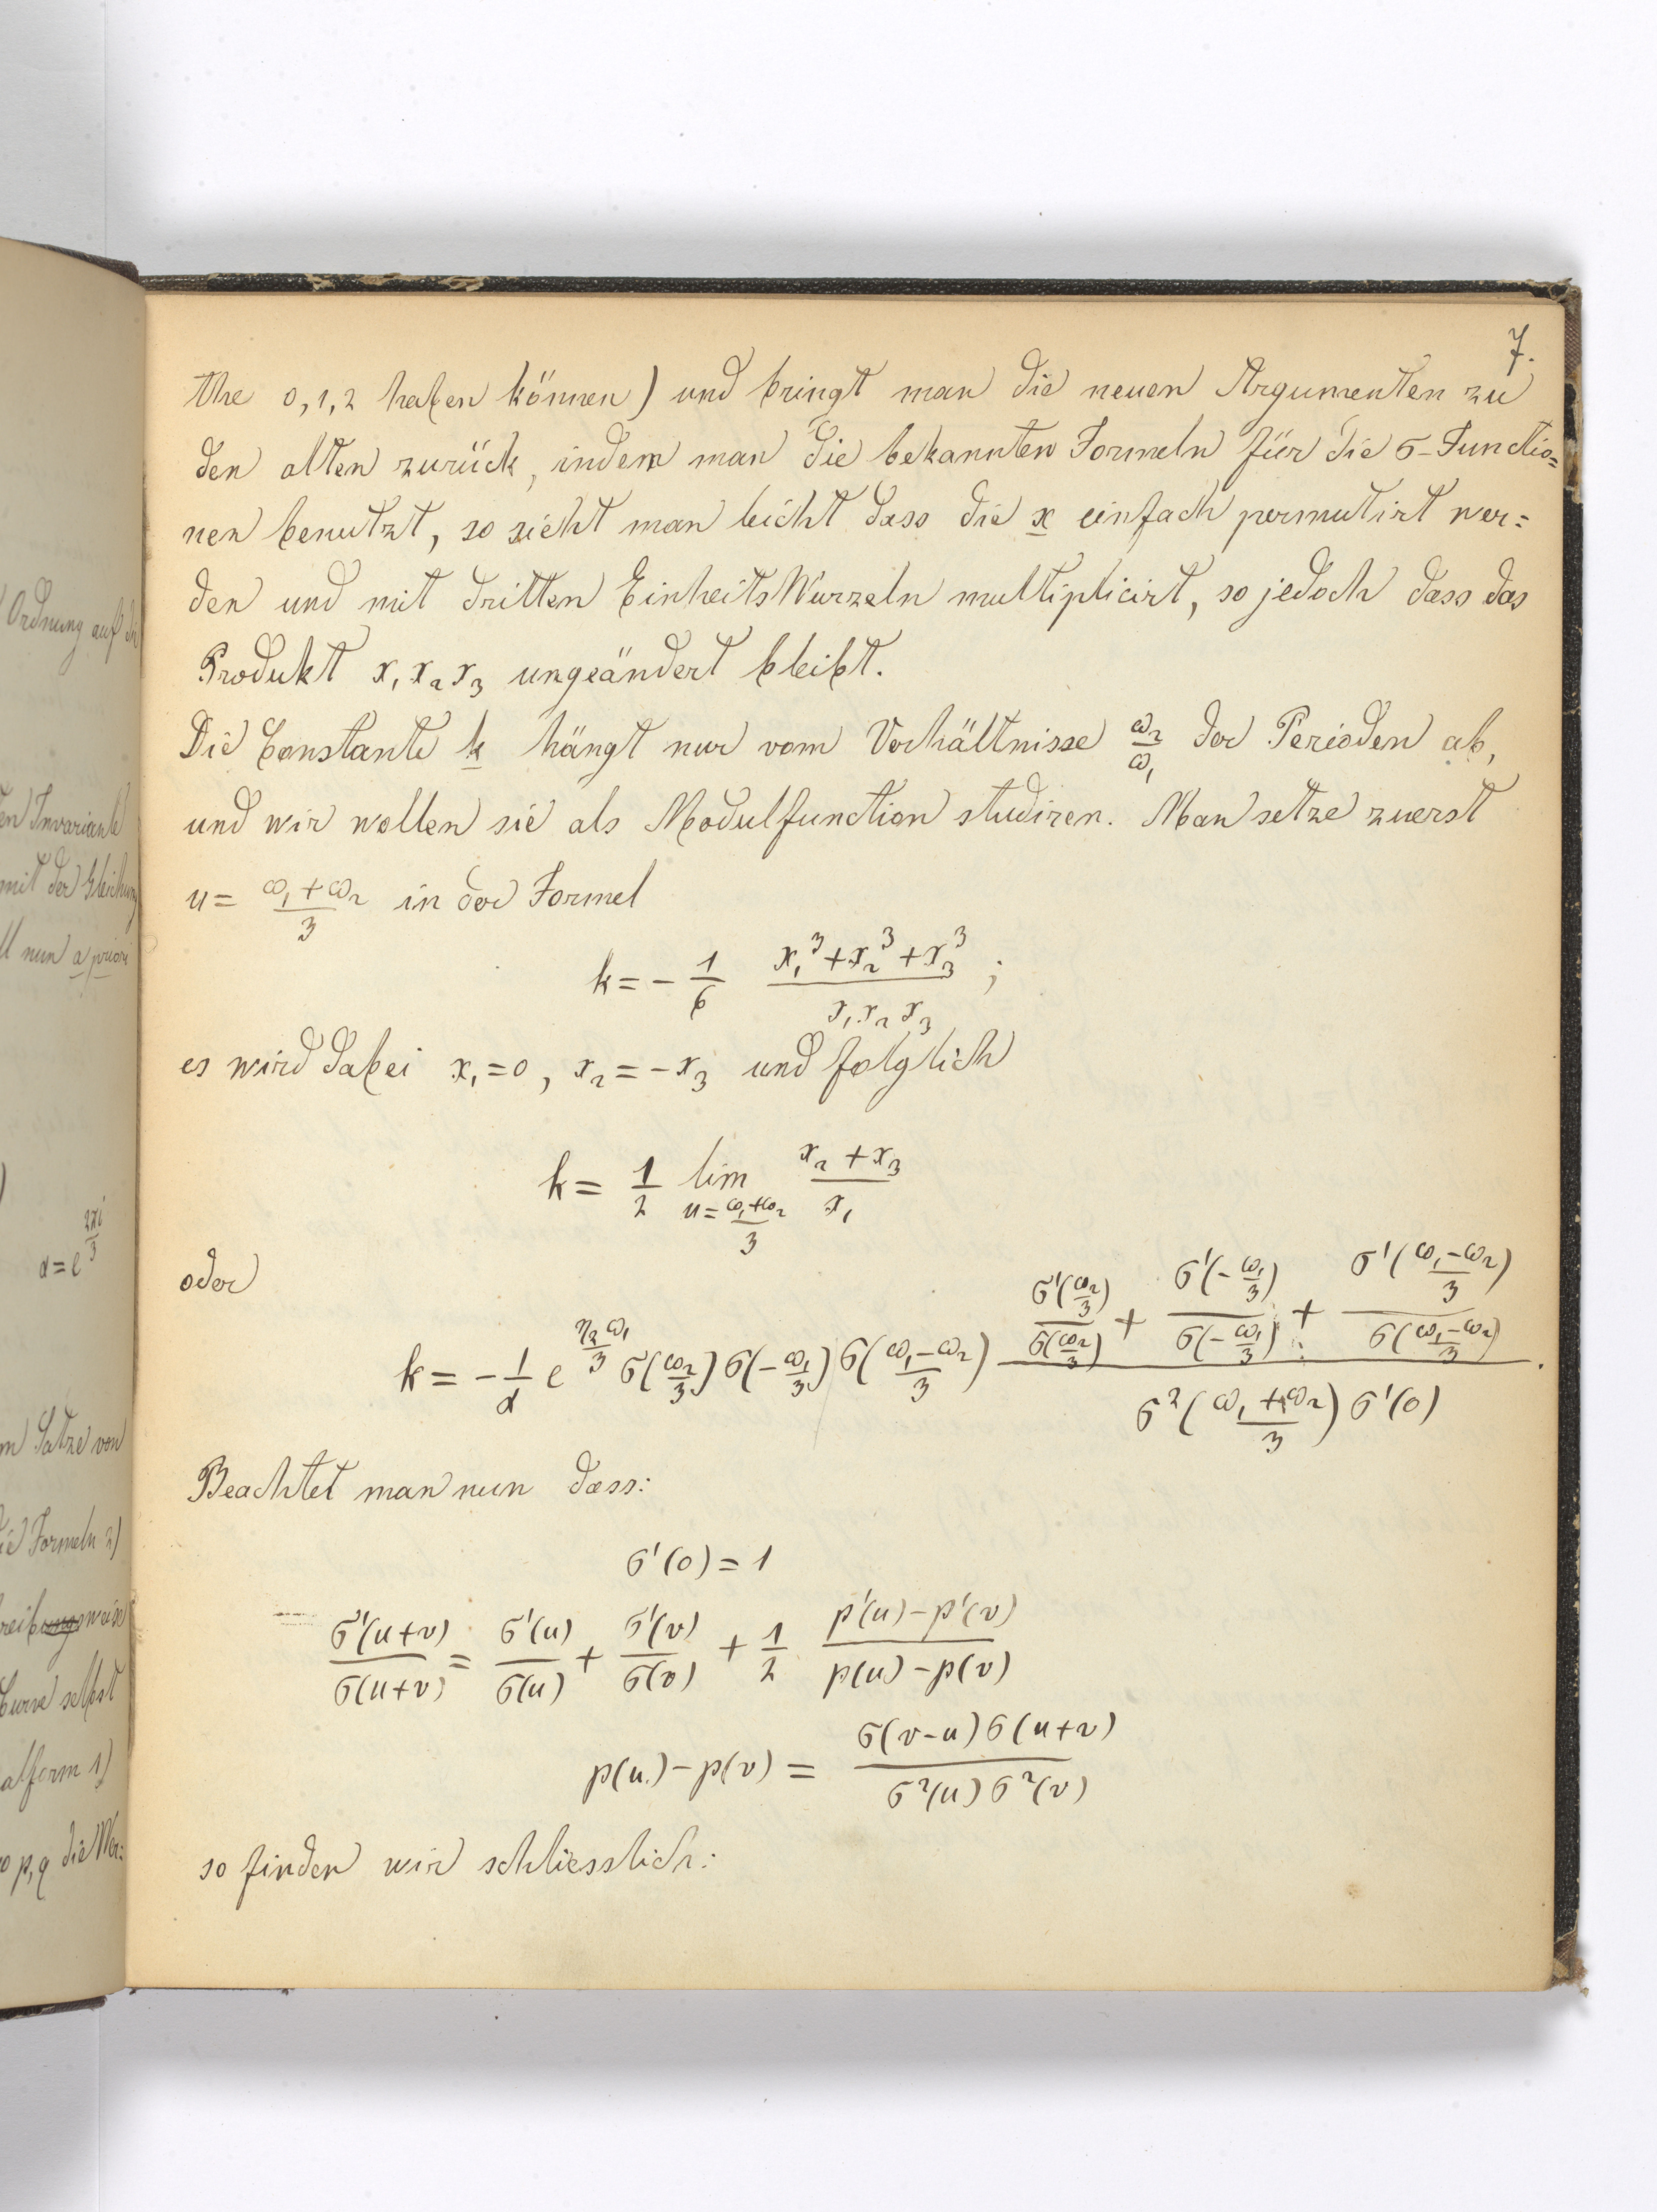 Ordnung auf di
en Invariante
mit der Gleichung
ll nun a priori
α = e^{2πi/3}
m Satze von
die Formeln 2)
reibungsweise
Curve selbst
alform 1)
o p, q die Wer:
7.
the 0, 1, 2 haben können) und bringt man die neuen Argumenten zu
den alten zurück, indem man die bekannten Formeln für die σ-Functio=
nen benutzt, so sieht man leicht dass die x einfach permutirt wer=
den und mit dritten EinheitsWurzeln multiplicirt, so jedoch dass das
Produkt x₁ x₂ x₃ ungeändert bleibt.
Die Constante k hängt nur vom Verhältnisse ω₂/ω₁ der Perioden ab,
und wir wollen sie als Modulfunction studiren. Man setze zuerst
u = (ω₁+ω₂)/3 in der Formel
k = - 1/6 (x₁³+x₂³+x₃³)/(x₁ x₂ x₃) ;
es wird dabei x₁=0, x₂=-x₃ und folglich
k = 1/2 lim_{u=(ω₁+ω₂)/3} (x₂+x₃)/x₁
oder
k = - 1/α e^{η₂ω₁/3} σ(ω₂/3) σ(-ω₁/3) σ((ω₁-ω₂)/3) (σ'(ω₂/3)/σ(ω₂/3) + σ'(-ω₁/3)/σ(-ω₁/3) + σ'((ω₁-ω₂)/3)/σ((ω₁-ω₂)/3))/(σ²((ω₁+ω₂)/3) σ'(0)).
Beachtet man nun dass:
σ'(0) = 1
σ'(u+v)/σ(u+v) = σ'(u)/σ(u) + σ'(v)/σ(v) + 1/2 (p'(u)-p'(v))/(p(u)-p(v))
p(u)-p(v) = σ(v-u)σ(u+v)/(σ²(u)σ²(v))
so finden wir schliesslich: